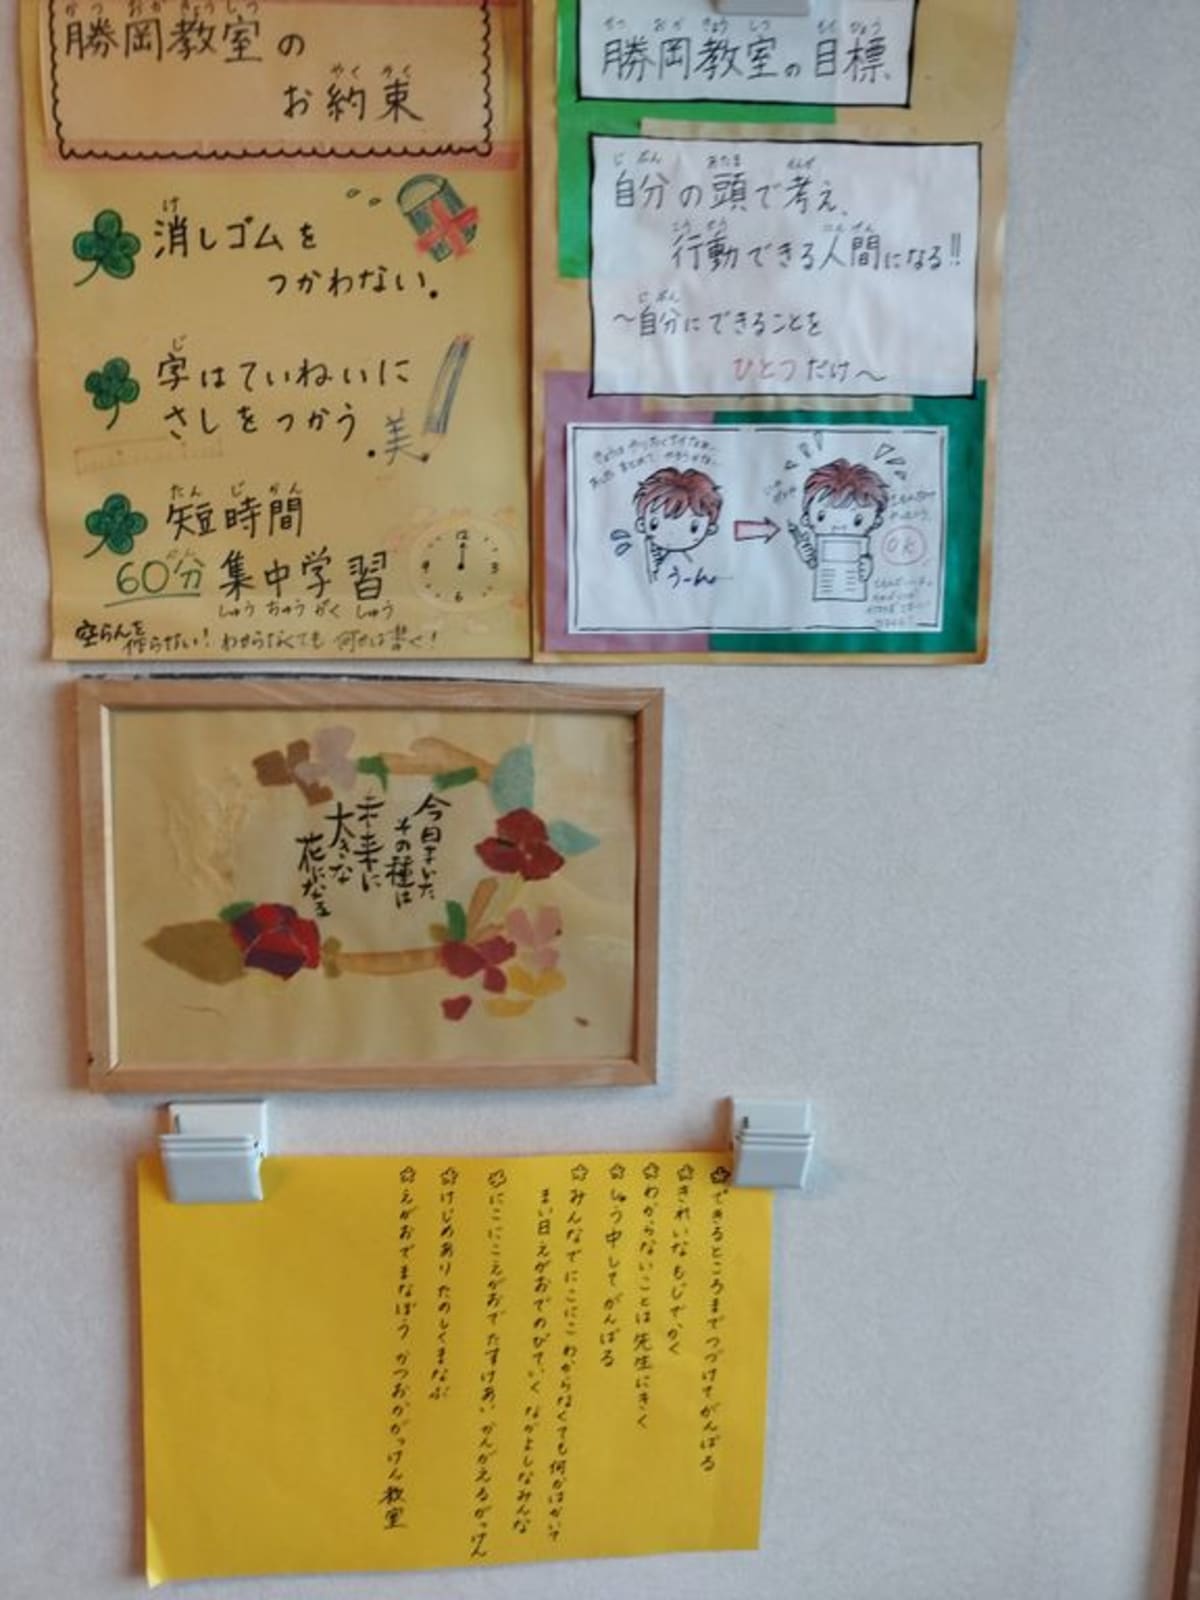 勝岡教室の
お約束
消しゴムを
つかわない.
字はていねいに
さしをつかう
美
短時間
60分 集中学習
しゅう ちゅう がく しゅう
空らんを
作らない! わからなくても 何かは書く!
12
3
6
9
勝岡教室の目標
自分の頭で考え、
行動できる人間になる!!
〜自分にできることを
ひとつだけ〜
うーん
OK
今日まいた
その種は
未来に
大きな
花になる
できるところまでつづけてがんばる
きれいなもじでかく
わからないことは先生にきく
しゅう中してがんばる
みんなでにこにこ わからなくても何かはかいて
まい日えがおでのびていく なかよしなみんな
にこにこえがおで たすけあい かんがえるがっけん
けじめあり たのしくまなぶ
えがおでまなぼう かつおかがっけん教室